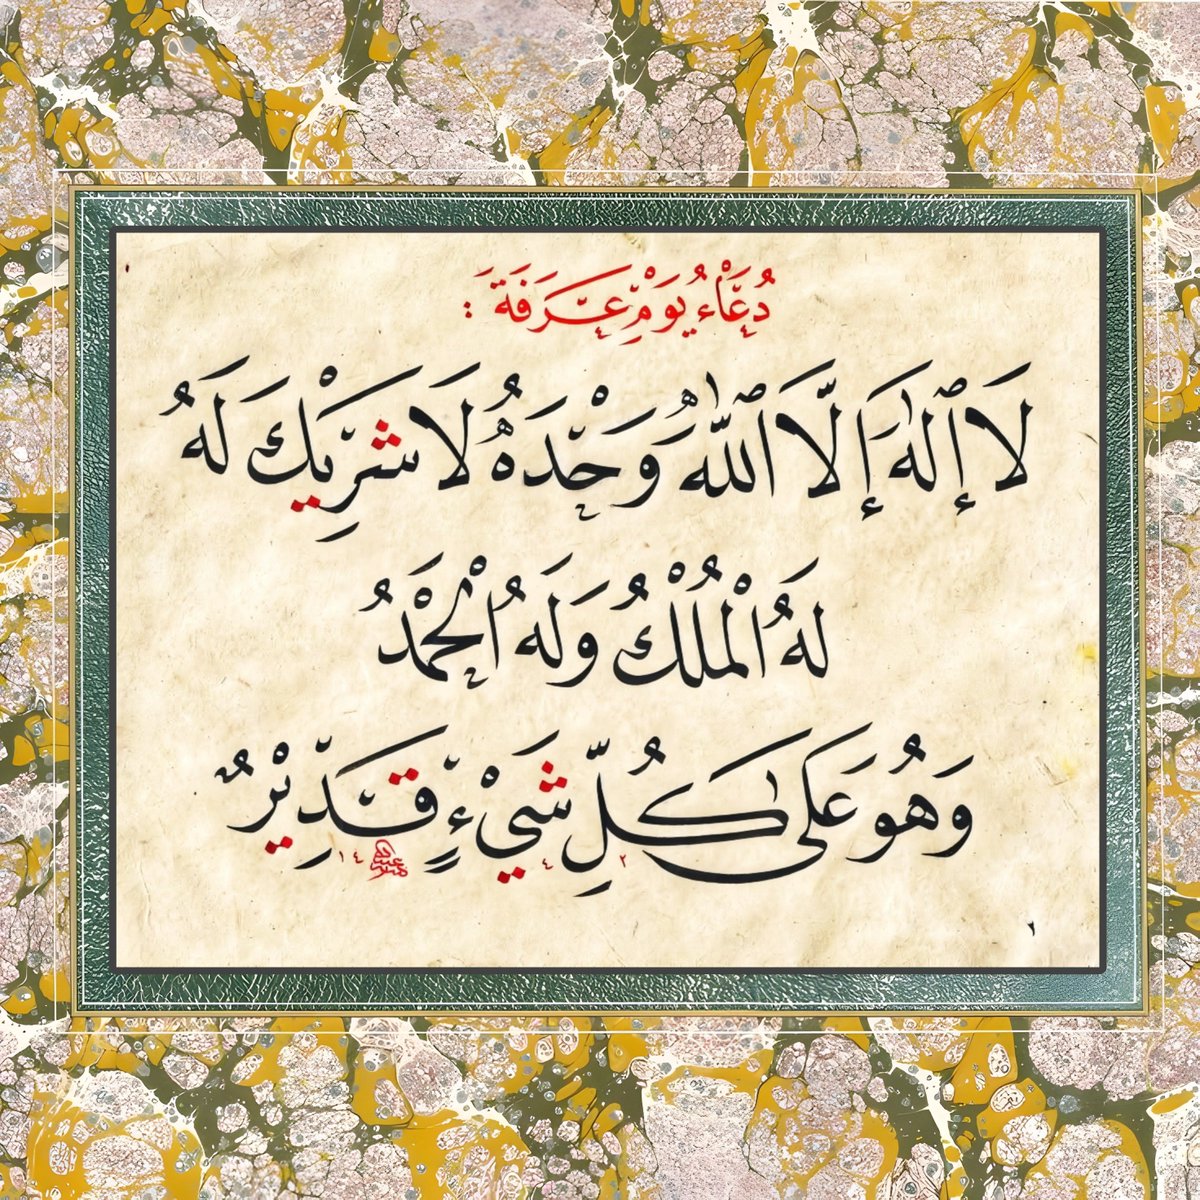 دُعَاء يَوْمِ عَرَفَةَ :
لَا إِلٰهَ إِلَّا ٱللّٰهُ وَحْدَهُ لَا شَرِيْكَ لَهُ
لَهُ الْمُلْكُ وَلَهُ الْحَمْدُ
وَهُوَ عَلَى كُلِّ شَيْءٍ قَدِيْرٌ